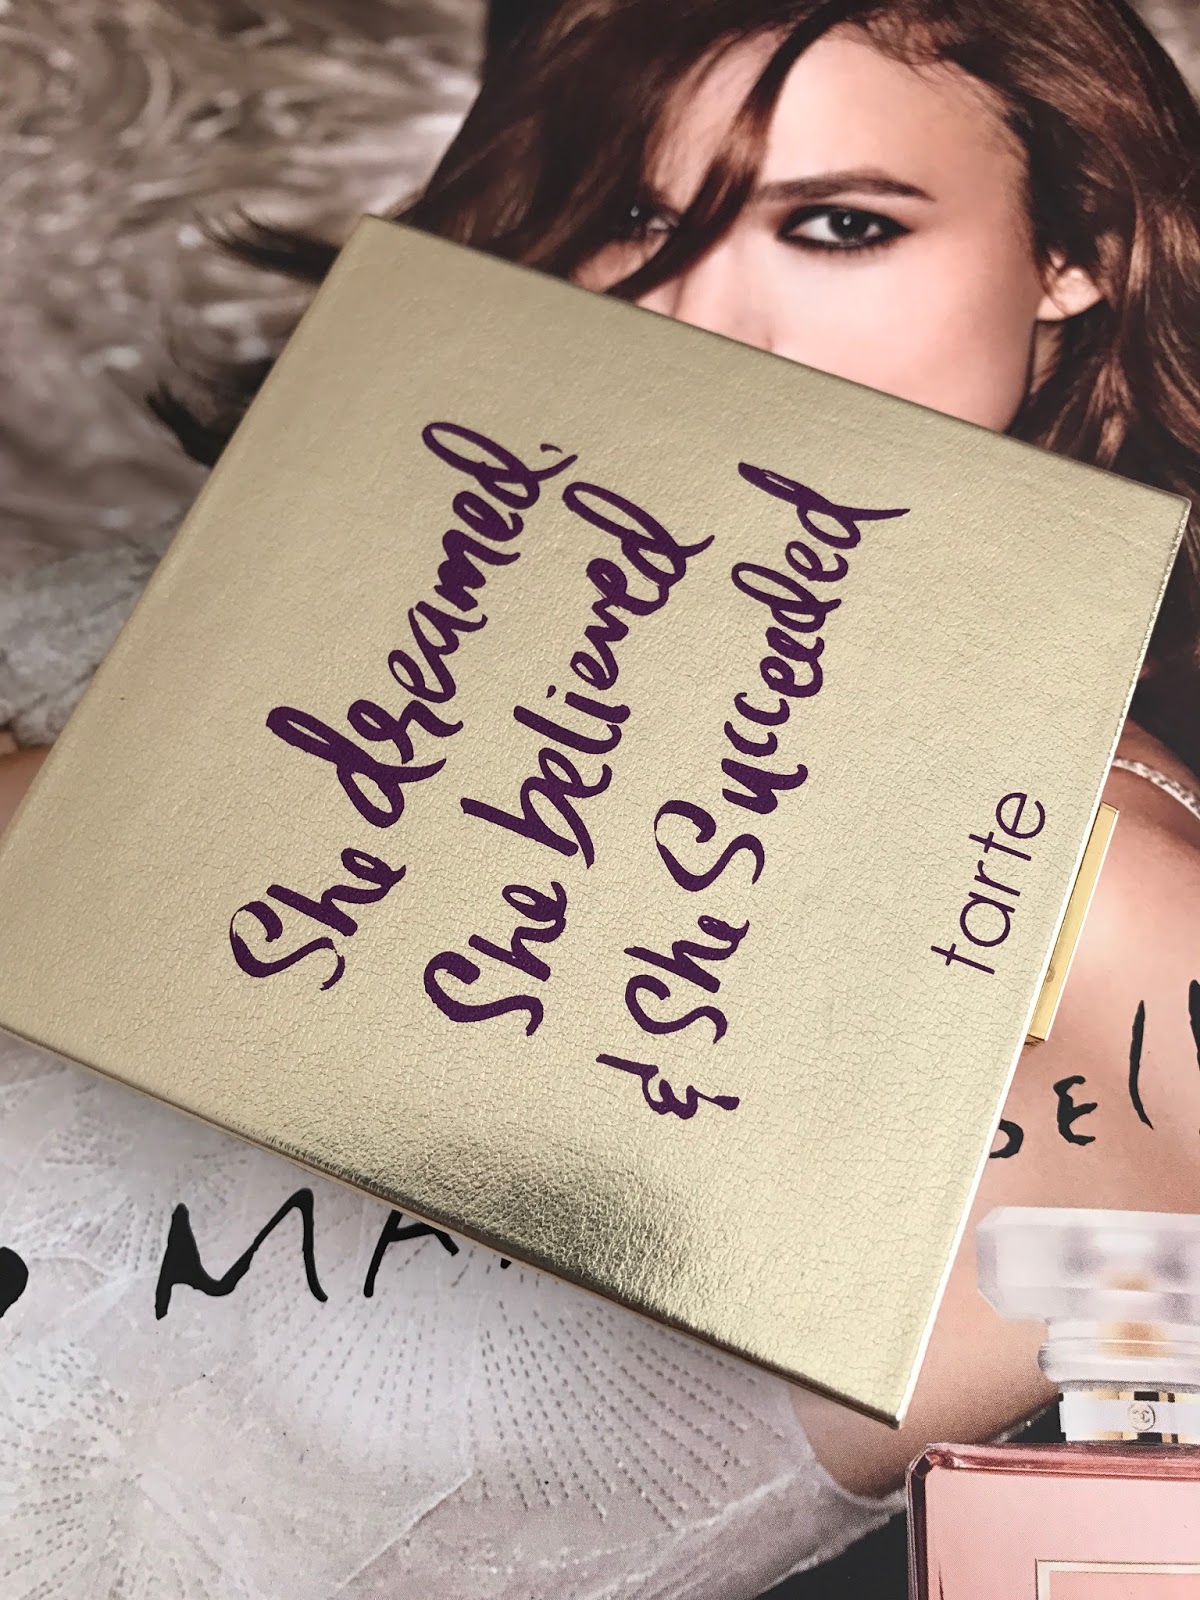 She dreamed,
She believed
& She Succeeded
tarte